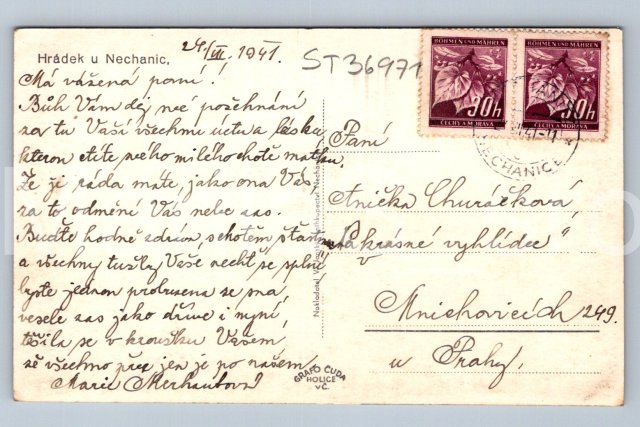 24./III. 1941.
ST36971
Hrádek u Nechanic,
Má vážená paní!
Bůh Vám dej své požehnání
za tu Vaší všechnu úctu a lásku
kterou ctíte svého milého chotě matku.
Že ji ráda máte, jako ona Vás
za to odmění Vás nebe zas.
Buďte hodně zdráva, s chotěm šťastna
a všechny tužby Vaše nechť se splní
byste jednou
vesele zas jako dříve i nyní,
těšila se v kroužku Vašem
že všechno přec jen je po našem.
Marie Merhautová
BÖHMEN UND MÄHREN
30h
ČECHY A MORAVA
BÖHMEN UND MÄHREN
30h
ČECHY A MORAVA
NECHANICE
Paní
Anička Churáčková,
"Na krásné vyhlídce"
v
Mnichovicích 249.
u Prahy.
GRAFO ČUDA
HOLICE
V Č.